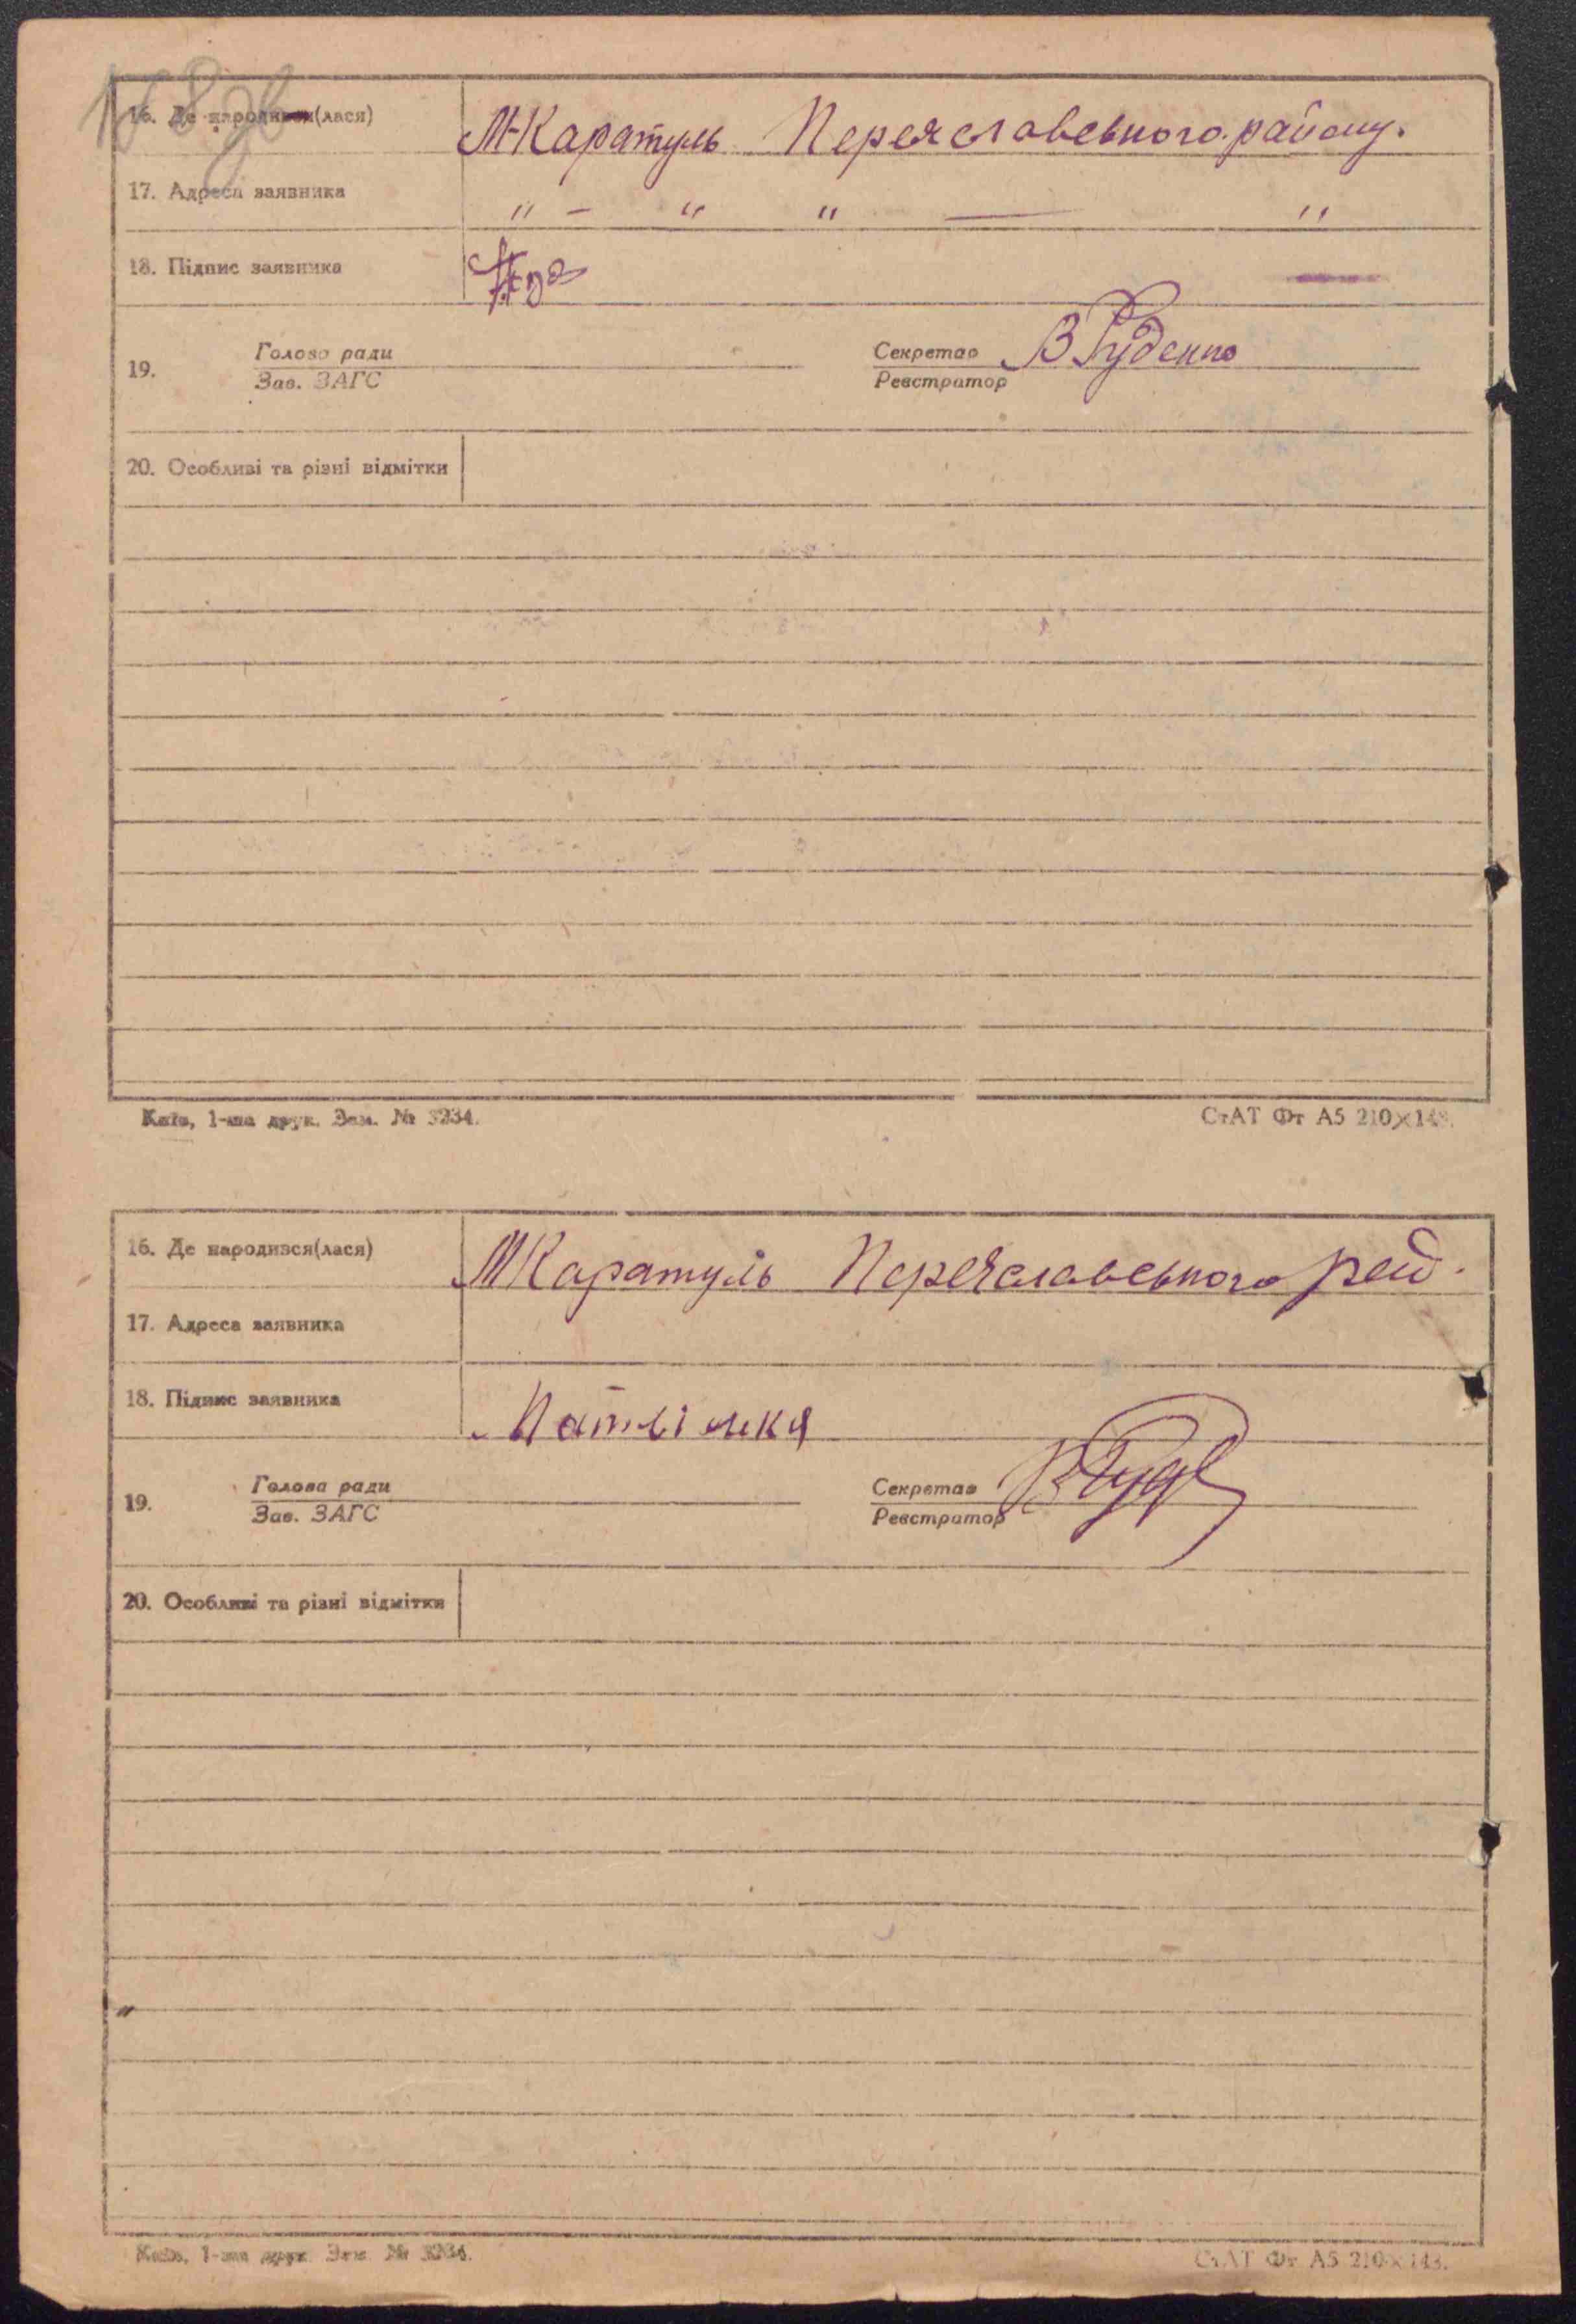 168 зв
16. Де народився(лася) М-Каратуль Переяславського району.
17. Адреса заявника " - " " — "
18. Підпис заявника
19. Голова ради Секретар В Руденко
Зав. ЗАГС Реєстратор
20. Особливі та різні відмітки
Київ, 1-ша друк. Зам. № 3234. СтАТ Фт А5 210×148.
16. Де народився(лася) МКаратуль Переяславського рай.
17. Адреса заявника
18. Підпис заявника
19. Голова ради Секретар В Руд
Зав. ЗАГС Реєстратор
20. Особливі та різні відмітки
Київ, 1-ша друк. Зам. № 3234. СтАТ Фт А5 210×148.